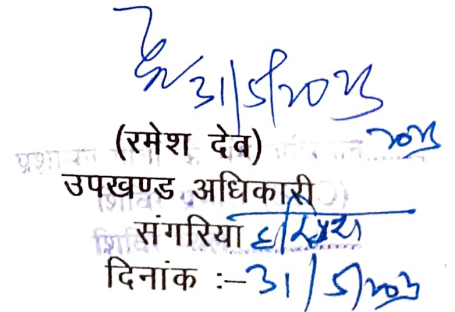 31/5/2023
(रमेश देव) 2023
उपखण्ड अधिकारी
संगरिया
दिनांक :- 31/5/2023